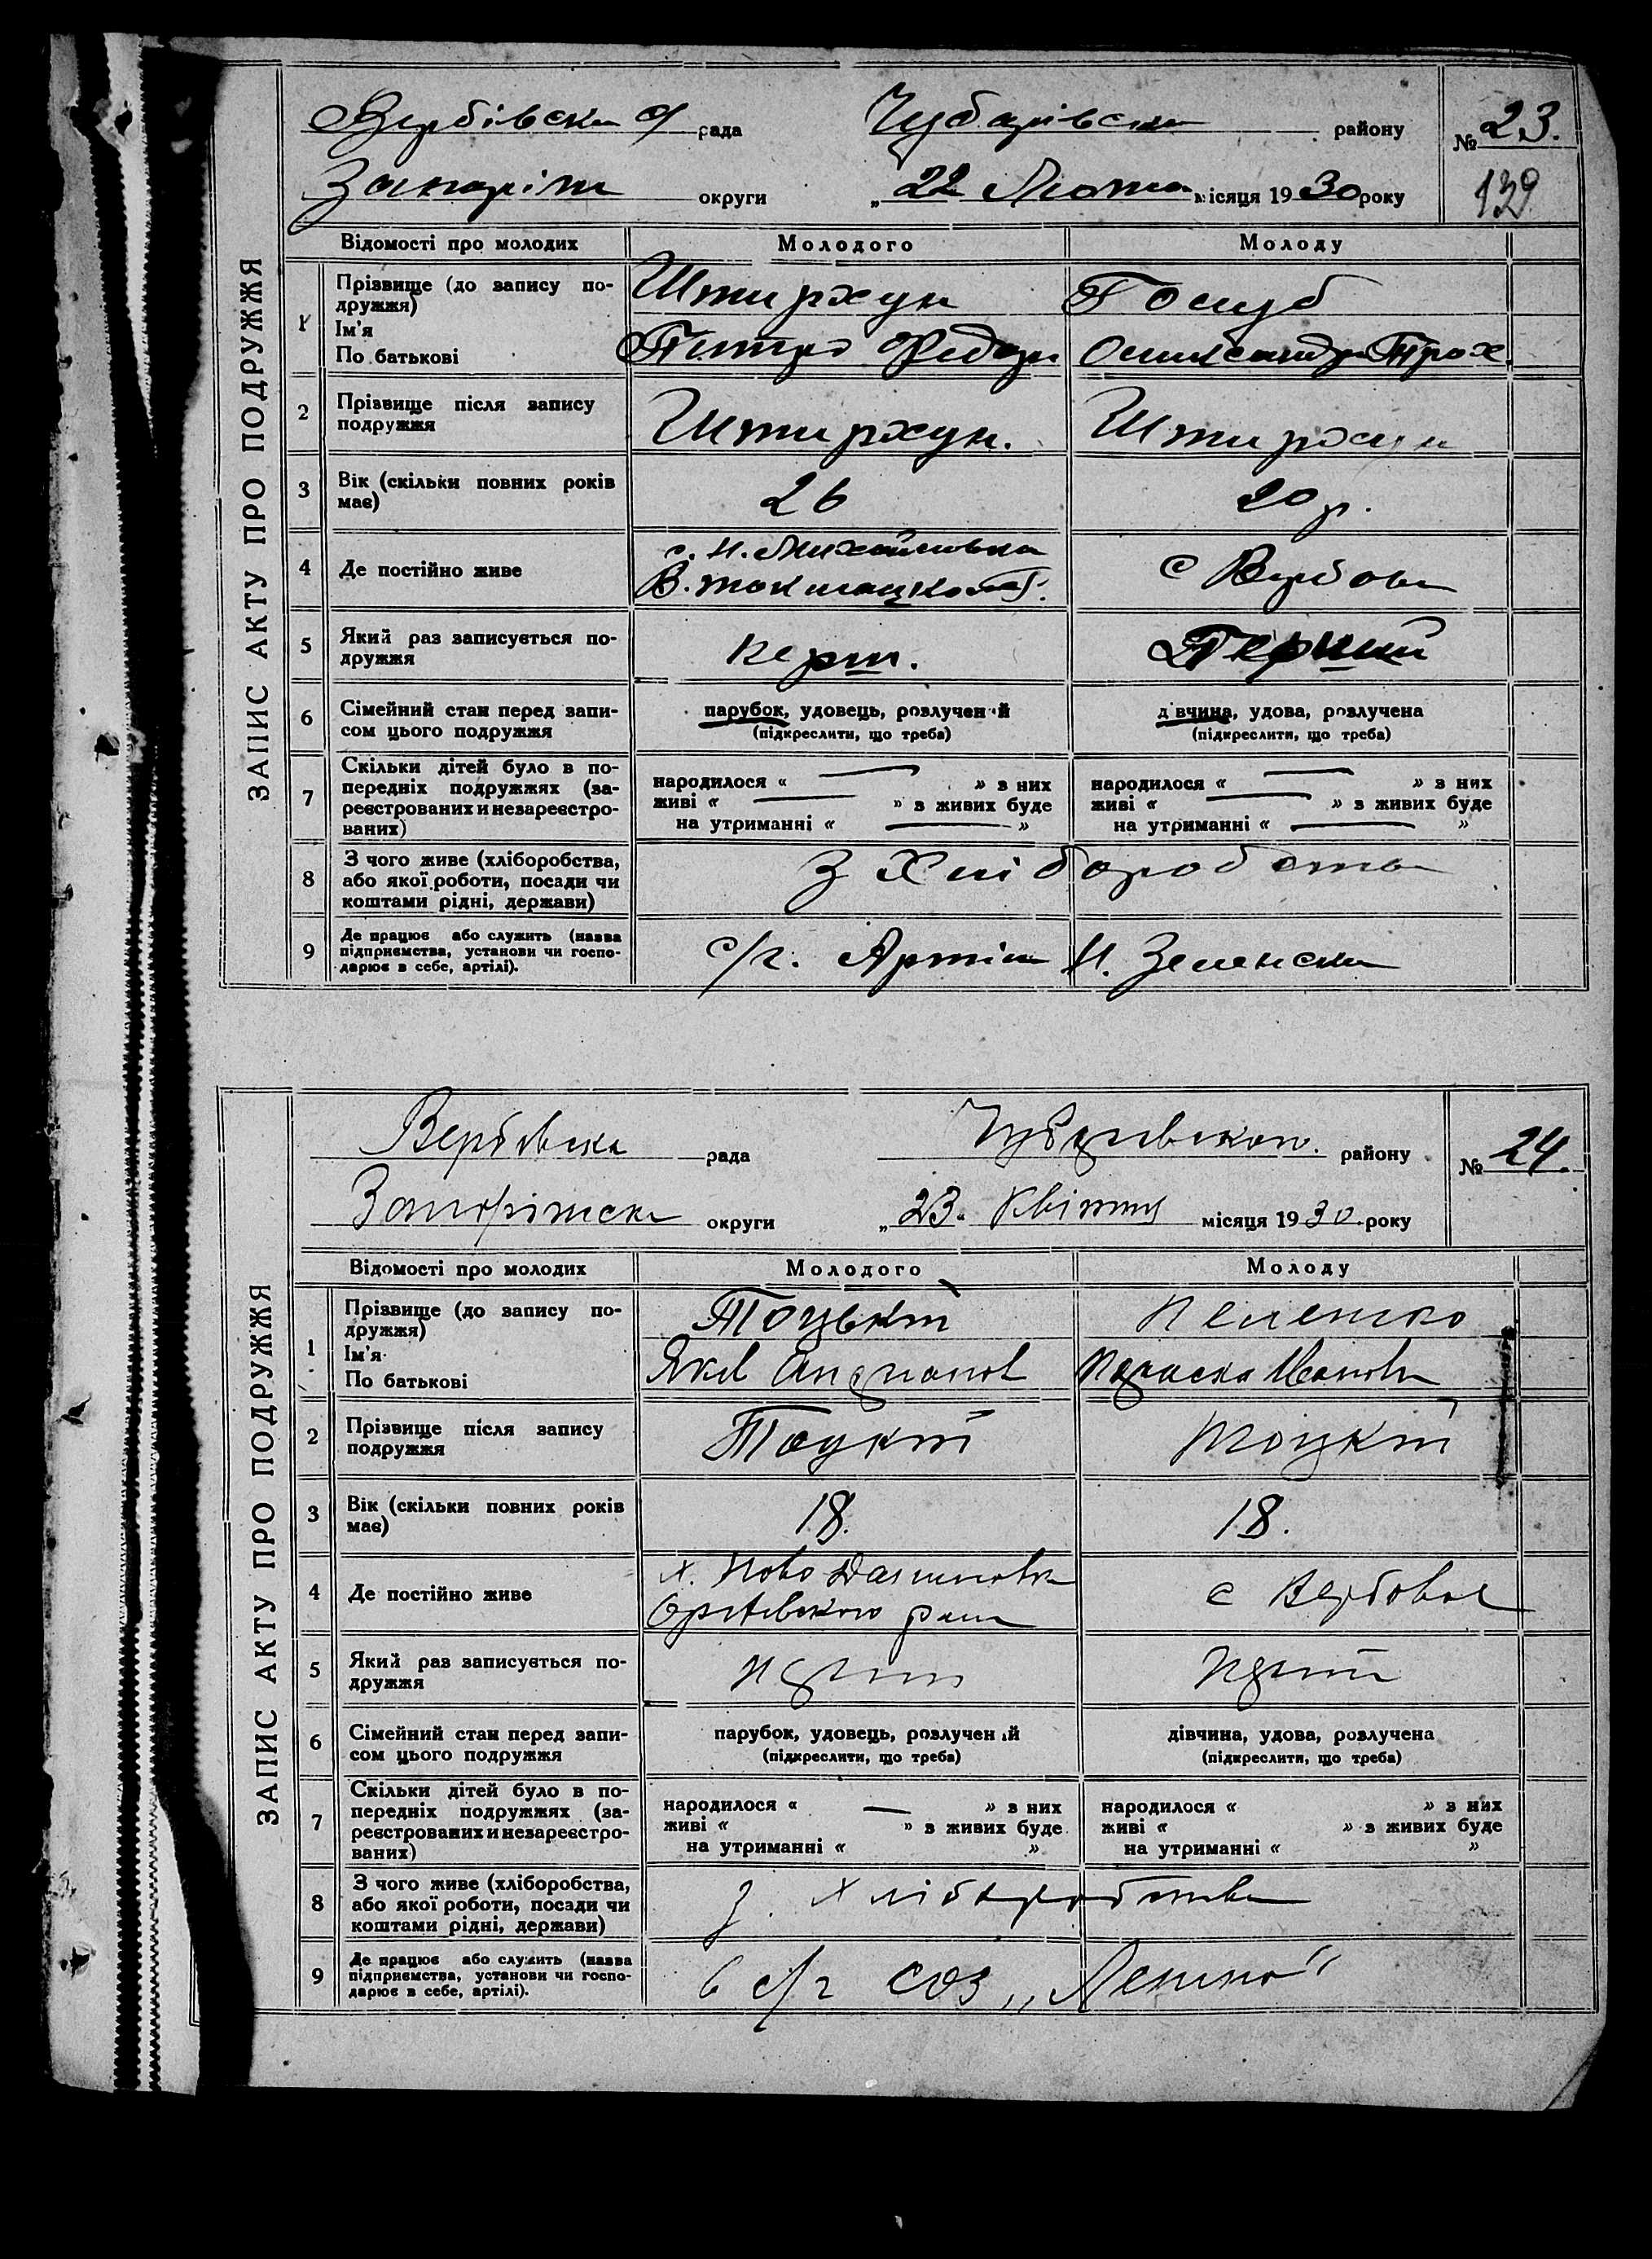 ЗАПИС АКТУ ПРО ПОДРУЖЖЯ
Вербівська с/ рада Чубарівська району № 23.
Запоріж округи „ 22 Лютого місяця 1930 року 139
Відомості про молодих Молодого Молоду
1 Прізвище (до запису подружжя) Штирхун Голуб
Ім'я
По батькові Петро Федор Олександра Трох
2 Прізвище після запису подружжя Штирхун. Штирхун
3 Вік (скільки повних років має) 26 20 р.
4 Де постійно живе с. Н. Михайловка с Вербове
В. токмацького
5 Який раз записується подружжя перш. Перший
6 Сімейний стан перед записом цього подружжя парубок, удовець, розлучений дівчина, удова, розлучена
(підкреслити, що треба) (підкреслити, що треба)
7 Скільки дітей було в попередніх подружжях (зареєстрованих и незареєстрованих) народилося « — » з них народилося « — » з них
живі « — » з живих буде живі « — » з живих буде
на утриманні « — » на утриманні « — »
8 З чого живе (хліборобства, або якої роботи, посади чи коштами рідні, держави) З Хліборобства
9 Де працює або служить (назва підприємства, установи чи господарює в себе, артілі). с/г. Артіль Н. Зеленська
ЗАПИС АКТУ ПРО ПОДРУЖЖЯ
Вербівська рада Чубарівського району № 24.
Запоріжська округи „ 23 Квітня місяця 1930 року
Відомості про молодих Молодого Молоду
1 Прізвище (до запису подружжя) Тоцький
Ім'я
По батькові Яків Андрианов Параска Іванівна
2 Прізвище після запису подружжя Тоцкій Тоцкій
3 Вік (скільки повних років має) 18. 18.
4 Де постійно живе х. Ново Даниловка с Вербовое
Оріхівського району
5 Який раз записується подружжя перший перший
6 Сімейний стан перед записом цього подружжя парубок, удовець, розлучений дівчина, удова, розлучена
(підкреслити, що треба) (підкреслити, що треба)
7 Скільки дітей було в попередніх подружжях (зареєстрованих и незареєстрованих) народилося « — » з них народилося « » з них
живі « » з живих буде живі « » з живих буде
на утриманні « » на утриманні « »
8 З чого живе (хліборобства, або якої роботи, посади чи коштами рідні, держави) з. хліборобства
9 Де працює або служить (назва підприємства, установи чи господарює в себе, артілі). в с/г соз „Леніно"